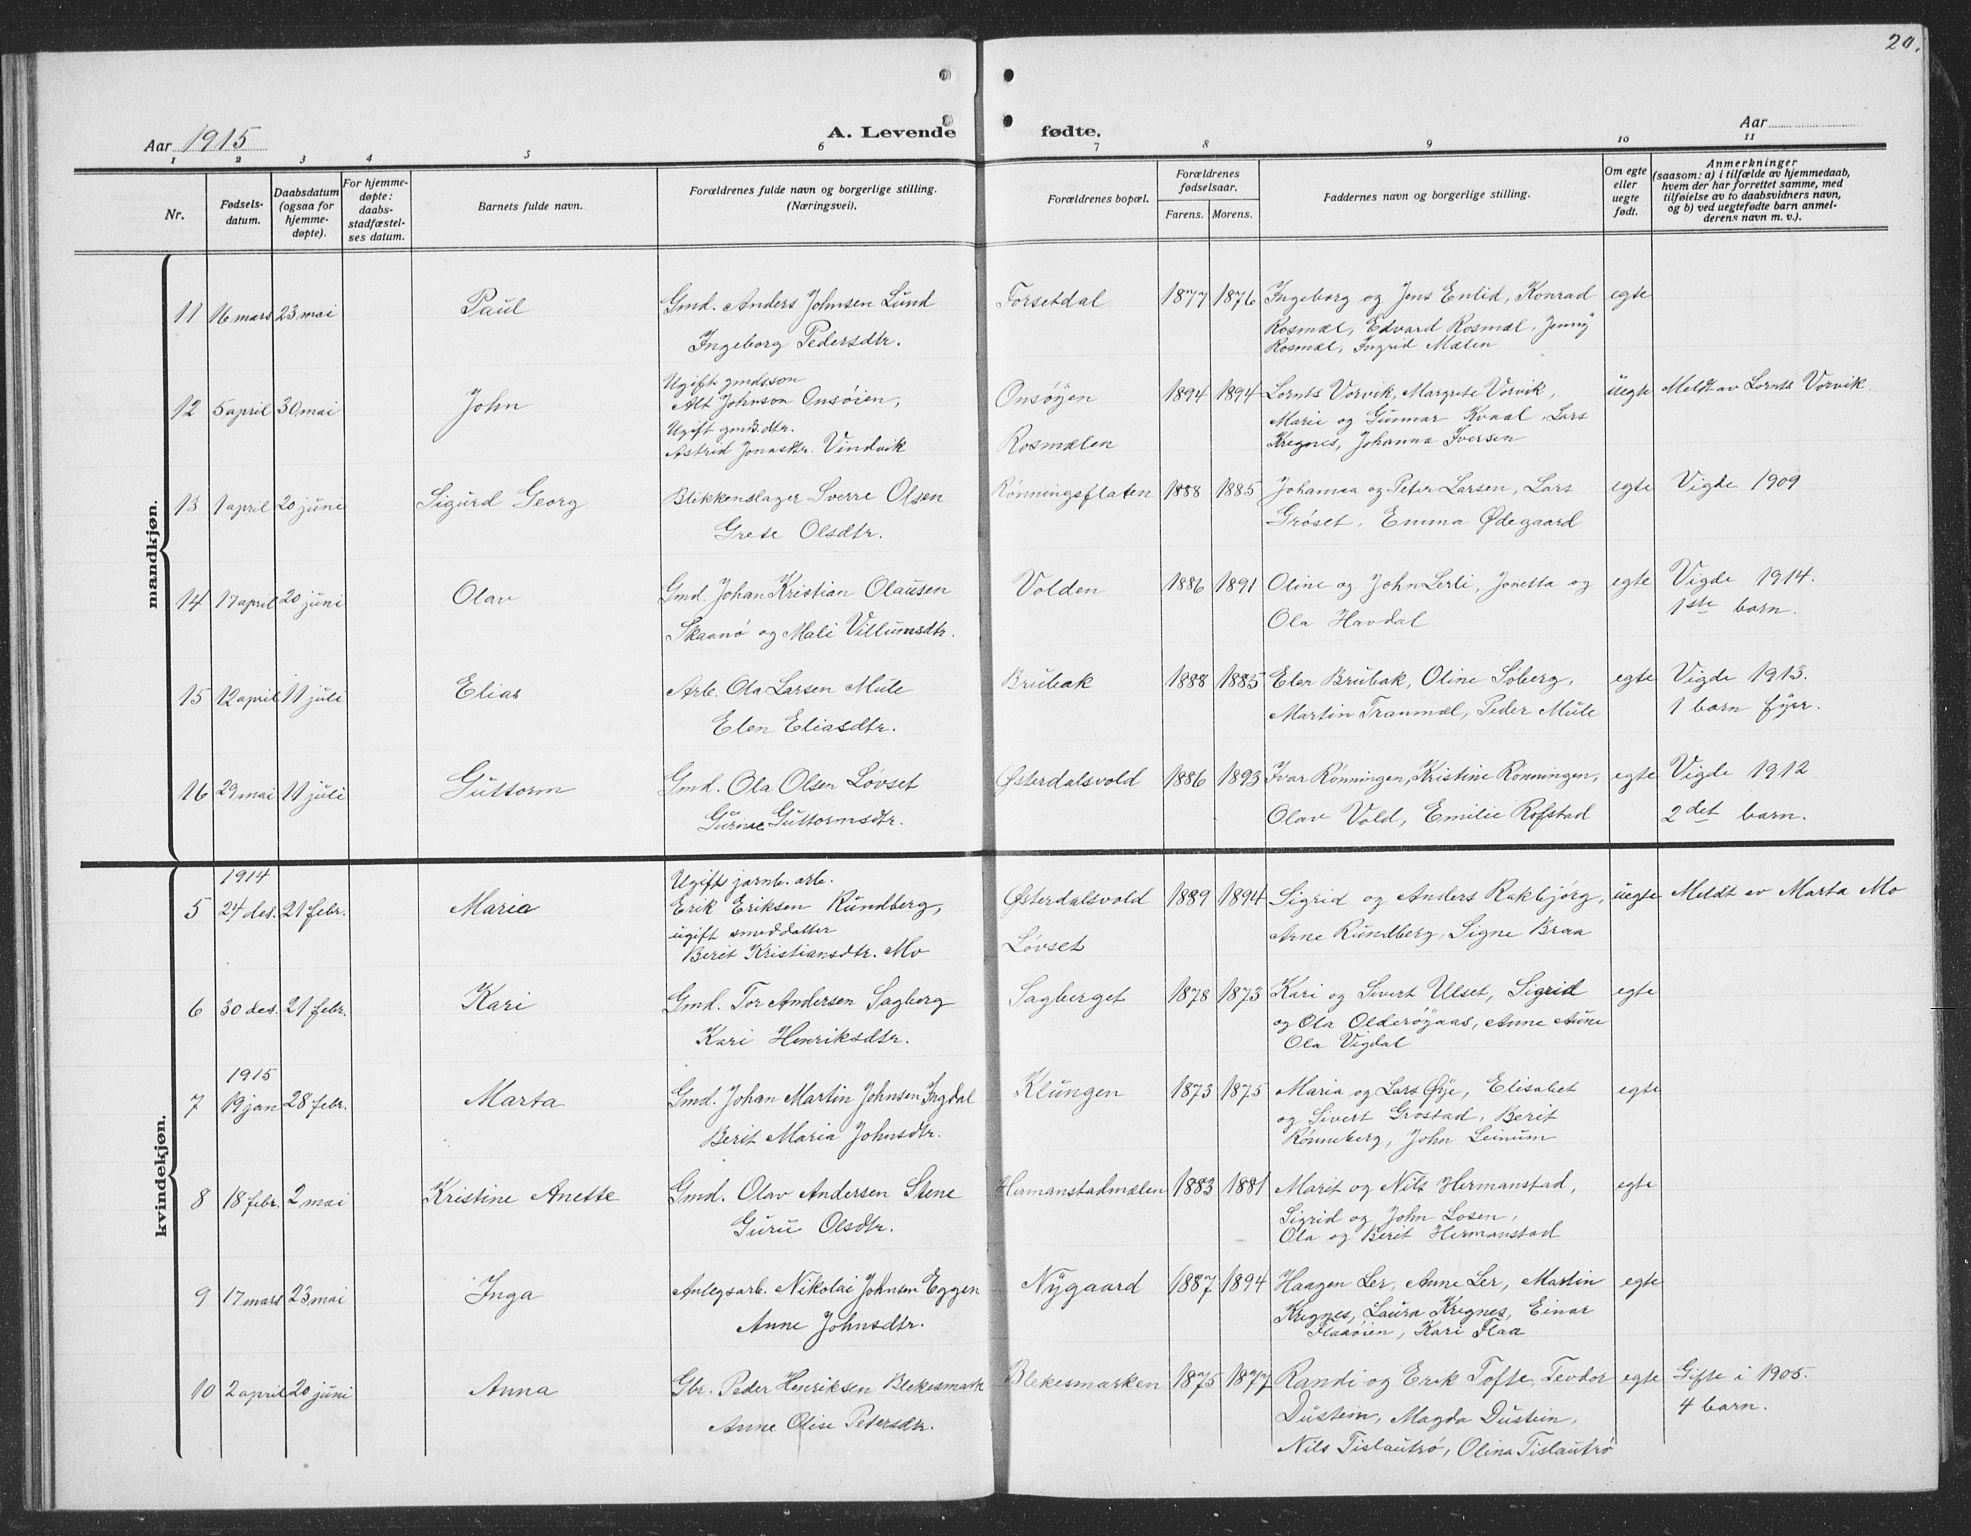 20.
Aar 1915
A. Levende fødte.
Aar
1 2 3 4 5 6 7 8 9 10 11
Nr.
Fødsels-
datum.
Daabsdatum
(ogsaa for
hjemme-
døpte).
For hjemme-
døpte:
daabs-
stadfæstel-
ses datum.
Barnets fulde navn.
Forældrenes fulde navn og borgerlige stilling.
(Næringsvei).
Forældrenes bopæl.
Forældrenes
fødselsaar.
Farens. Morens.
Faddernes navn og borgerlige stilling.
Om egte
eller
uegte
født.
Anmerkninger
(saasom: a) i tilfælde av hjemmedaab,
hvem der har forrettet samme, med
tilføielse av to daabsvidners navn,
og b) ved uegtefødte barn anmel-
derens navn m. v.).
mandkjøn.
11 16 mars 23 mai Paul Gmd. Anders Johnsen Lund Forsetdal 1877 1876 Ingeborg og Jens Enlid, Konrad egte
Ingeborg Pedersdtr. Rosmæl, Edvard Rosmæl, Jenny
Rosmæl, Ingrid Mælen
Ugift gmdsson
12 5 april 30 mai John Alt Johnson Onsøien, Onsøyen 1894 1894 Lornts Vorvik, Margrete Vorvik, uegte Meldt av Lornts Vorvik
Ugift gmd.dtr. Marie og Gunnar Kvaal, Lars
Astrid Jonasdtr. Vindvik Rosmælen Kregnes, Johanna Iversen
13 1 april 20 juni Sigurd Georg Blikkenslager Sverre Olsen Rønningsflaten 1888 1885 Johanna og Peter Larsen, Lars egte Vigde 1909
Grete Olsdtr. Grøset, Emma Ødegaard
14 17 april 20 juni Olav Gmd. Johan Kristian Olausen Volden 1886 1891 Oline og John Lerli, Jonetta og egte Vigde 1914.
Skaanø og Mali Villumsdtr. Ola Havdal 1ste barn.
15 12 april 11 juli Elias Arb. Ola Larsen Mule Brubak 1888 1885 Elen Brubak, Oline Søberg, egte Vigde 1913.
Elen Eliasdtr. Martin Tranmæl, Peder Mule 1 barn fyer.
16 29 mai 11 juli Guttorm Gmd. Ola Olsen Løvset Østerdalsvold 1886 1893 Ivar Rønningen, Kristine Rønningen, egte Vigde 1912
Gurine Guttormsdtr. Olav Vold, Emilie Rofstad 2det barn.
kvindekjøn.
1914 Ugift jarnb. arb.
5 24 des. 21 febr. Maria Erik Eriksen Rundberg, Østerdalsvold 1889 1894 Sigrid og Anders Rakbjørg, uegte Meldt ev Marta Mo
ugift smeddatter Arne Rundberg, Signe Braa
Berit Kristiansdtr. Mo Løvset
6 30 des. 21 febr. Kari Gmd. Tor Andersen Sagberg Sagberget 1878 1873 Kari og Sivert Ulset, Sigrid egte
Kari Henriksdtr. og Ola Olderøyaas, Anne Aune
Ola Vigdal
1915
7 19 jan 28 febr. Marta Gmd. Johan Martin Johnsen Ingdal Klungen 1873 1875 Maria og Lars Øye, Elisabet egte
Berit Maria Johnsdtr. og Sivert Grøstad, Berit
Rønneberg, John Leinum
8 18 febr. 2 mai Kristine Anette Gmd. Olav Andersen Stene Hermanstadmælen 1883 1881 Marit og Nils Hermanstad, egte
Guru Olsdtr. Sigrid og John Losen,
Ola og Berit Hermanstad
9 17 mars 23 mai Inga Anlegsarb. Nikolai Johnsen Eggen Nygaard 1887 1894 Haagen Ler, Anne Ler, Martin egte
Anne Johnsdtr. Kregnes, Laura Kregnes, Einar
Flaaøien, Kari Flaa
10 2 april 20 juni Anna Gbr. Peder Henriksen Blekesmark Blekesmarken 1875 1877 Randi og Erik Tofte, Teodor egte Gifte i 1905.
Anne Olise Petersdtr. Dustein, Magda Dustein, 4 barn.
Nils Tislautrø, Olina Tislautrø